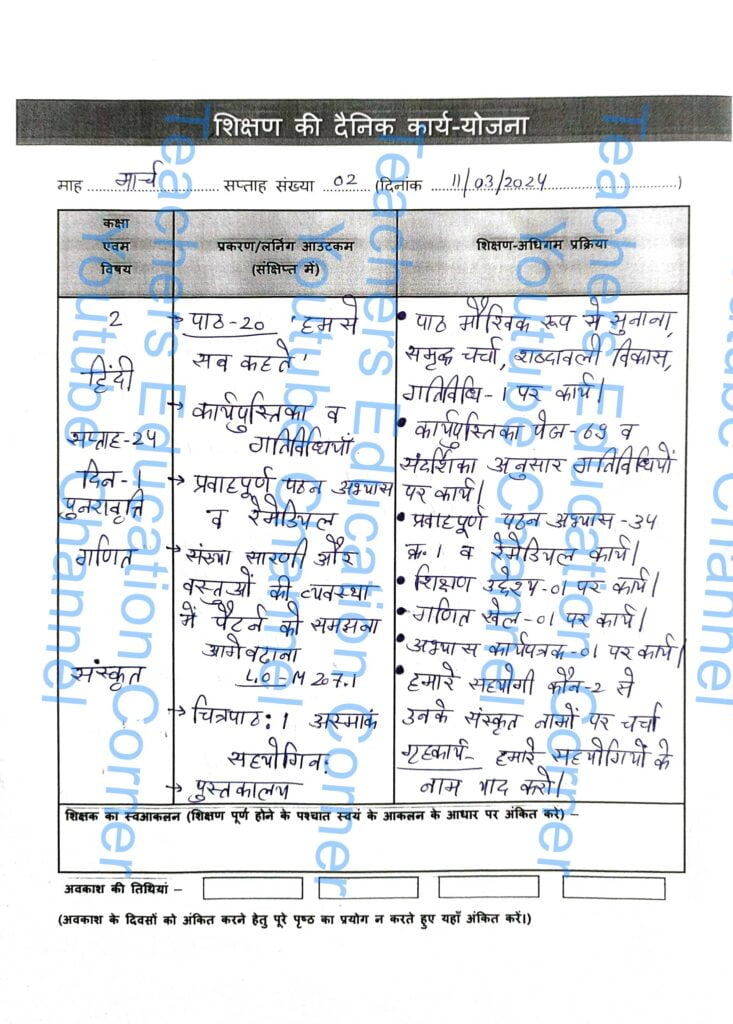 शिक्षण की दैनिक कार्य-योजना
माह मार्च सप्ताह संख्या 02 (दिनांक 11/03/2024)
कक्षा
एवम
विषय
प्रकरण/लर्निंग आउटकम
(संक्षिप्त में)
शिक्षण-अधिगम प्रक्रिया
2
हिंदी
सप्ताह-24
दिन-1
पुनरावृत्ति
गणित
संस्कृत
→ पाठ-20 'हमसे
सब कहते'
→ कार्यपुस्तिका व
गतिविधियाँ
→ प्रवाहपूर्ण पठन अभ्यास
व रेमेडियल
→ संख्या सारणी और
वस्तुओं की व्यवस्था
में पैटर्न को समझना
आगे बढ़ाना
L.O-M207.1
→ चित्रपाठ: 1 अस्माकं
सहयोगिन:
→ पुस्तकालय
• पाठ मौखिक रूप से सुनाना,
समृद्ध चर्चा, शब्दावली विकास,
गतिविधि-1 पर कार्य।
• कार्यपुस्तिका पेज-69 व
संदर्शिका अनुसार गतिविधियों
पर कार्य।
• प्रवाहपूर्ण पठन अभ्यास-34
क्र.1 व रेमेडियल कार्य।
• शिक्षण उद्देश्य-01 पर कार्य।
• गणित खेल-01 पर कार्य।
• अभ्यास कार्यपत्रक-01 पर कार्य।
• हमारे सहयोगी कौन-2 से
उनके संस्कृत नामों पर चर्चा
गृहकार्य- हमारे सहयोगियों के
नाम याद करो।
शिक्षक का स्वआकलन (शिक्षण पूर्ण होने के पश्चात स्वयं के आकलन के आधार पर अंकित करे) –
अवकाश की तिथियां –
(अवकाश के दिवसों को अंकित करने हेतु पूरे पृष्ठ का प्रयोग न करते हुए यहाँ अंकित करें।)
Teachers Education Corner
Youtube Channel
Teachers Education Corner
Youtube Channel
Teachers Education Corner
Youtube Channel